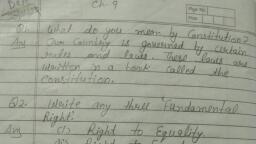 Ch. 9
Page No.
Date
Q1. What do you mean by Constitution?
Ans Our Country is governed by certain
rules and laws. These laws are
written in a book called the
constitution.
Q2. Write any three Fundamental
Right.
Ans (i) Right to Equality
(ii) Right to